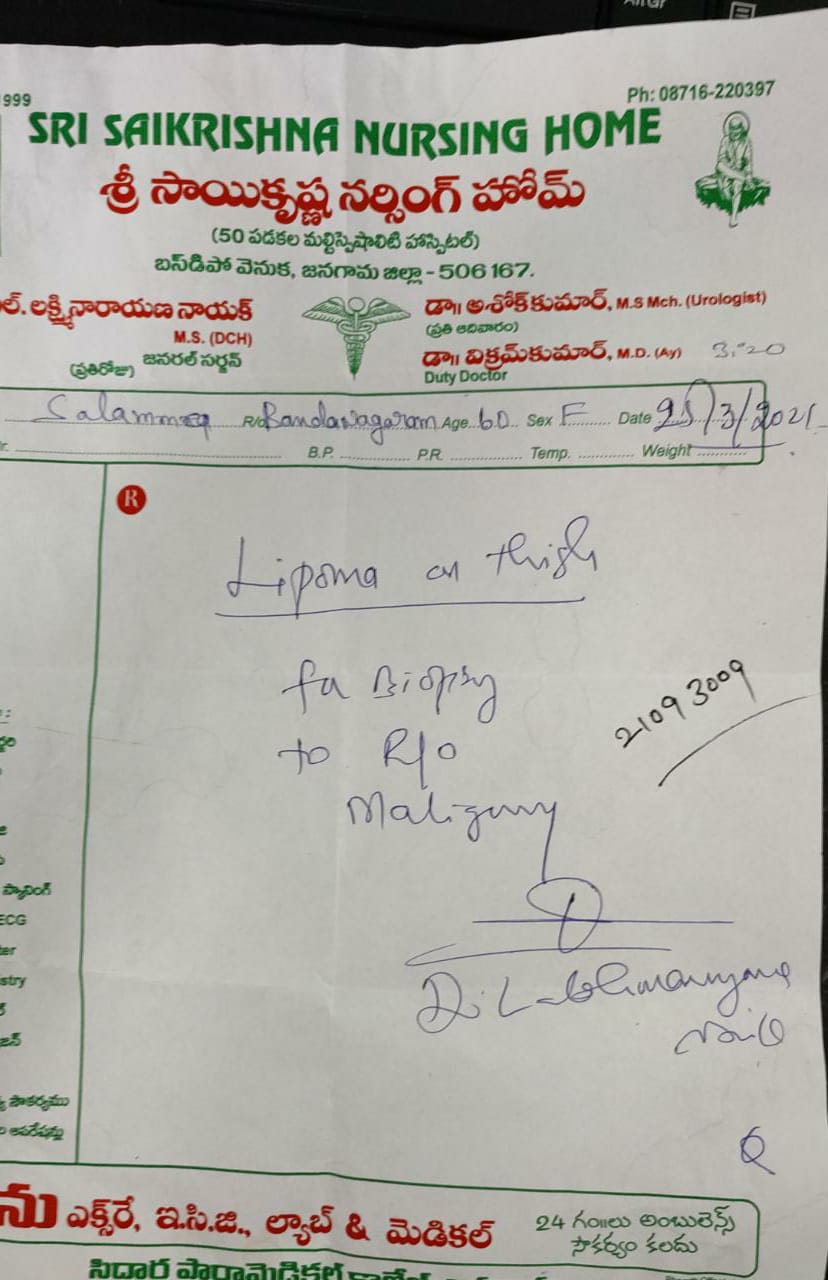 1999
Ph: 08716-220397
SRI SAIKRISHNA NURSING HOME
శ్రీ సాయికృష్ణ నర్సింగ్ హోమ్
(50 పడకల మల్టిస్పెషాలిటి హాస్పిటల్)
బస్‌డిపో వెనుక, జనగామ జిల్లా - 506 167.
ల్. లక్ష్మినారాయణ నాయక్
M.S. (DCH)
(ప్రతిరోజు) జనరల్ సర్జన్
డా॥ అశోక్‌కుమార్, M.S Mch. (Urologist)
(ప్రతి ఆదివారం)
డా॥ విక్రమ్‌కుమార్, M.D. (Ay) 3:20
Duty Doctor
Salamma R/o Age 60 Sex F Date 25/3/2021
B.P. P.R. Temp. Weight
R
Lipoma on thigh
for Biopsy
to R/o
21093009
స్కానింగ్
ECG
ter
stry
సౌకర్యము
ను ఎక్స్‌రే, ఇ.సి.జి., ల్యాబ్ & మెడికల్
24 గం॥లు అంబులెన్స్
సౌకర్యం కలదు